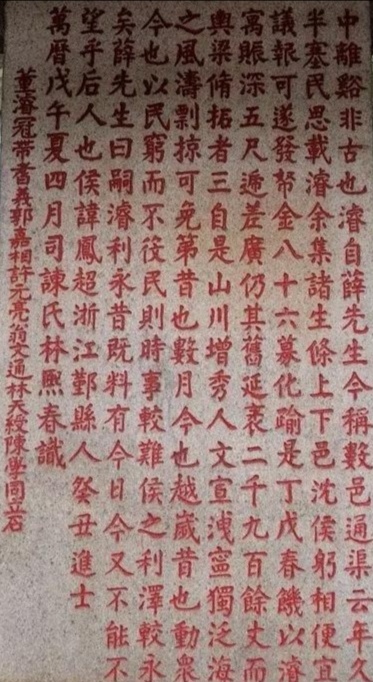 中離谿非古也濬自薛先生今稱數邑通渠云年久
半塞民思載濬余集諸生條上下邑沈侯躬相便宜
議報可遂發帑金八十六募化踰是丁戊春饑以濬
寓賑深五尺遞差廣仍其舊延袤二千九百餘丈而
輿梁脩拓者三自是山川增秀人文宣洩寍獨泛海
之風濤剽掠可免第昔也數月今也越歲昔也動衆
今也以民窮而不役民則時事較難侯之利澤較永
矣薛先生曰嗣濬利永昔既料有今日今又不能不
望乎后人也侯諱鳳超浙江鄞縣人癸丑進士
萬曆戊午夏四月司諫氏林熈春識
董濬冠帶耆義郭嘉相許元亮翁文通林大綬陳學同立石